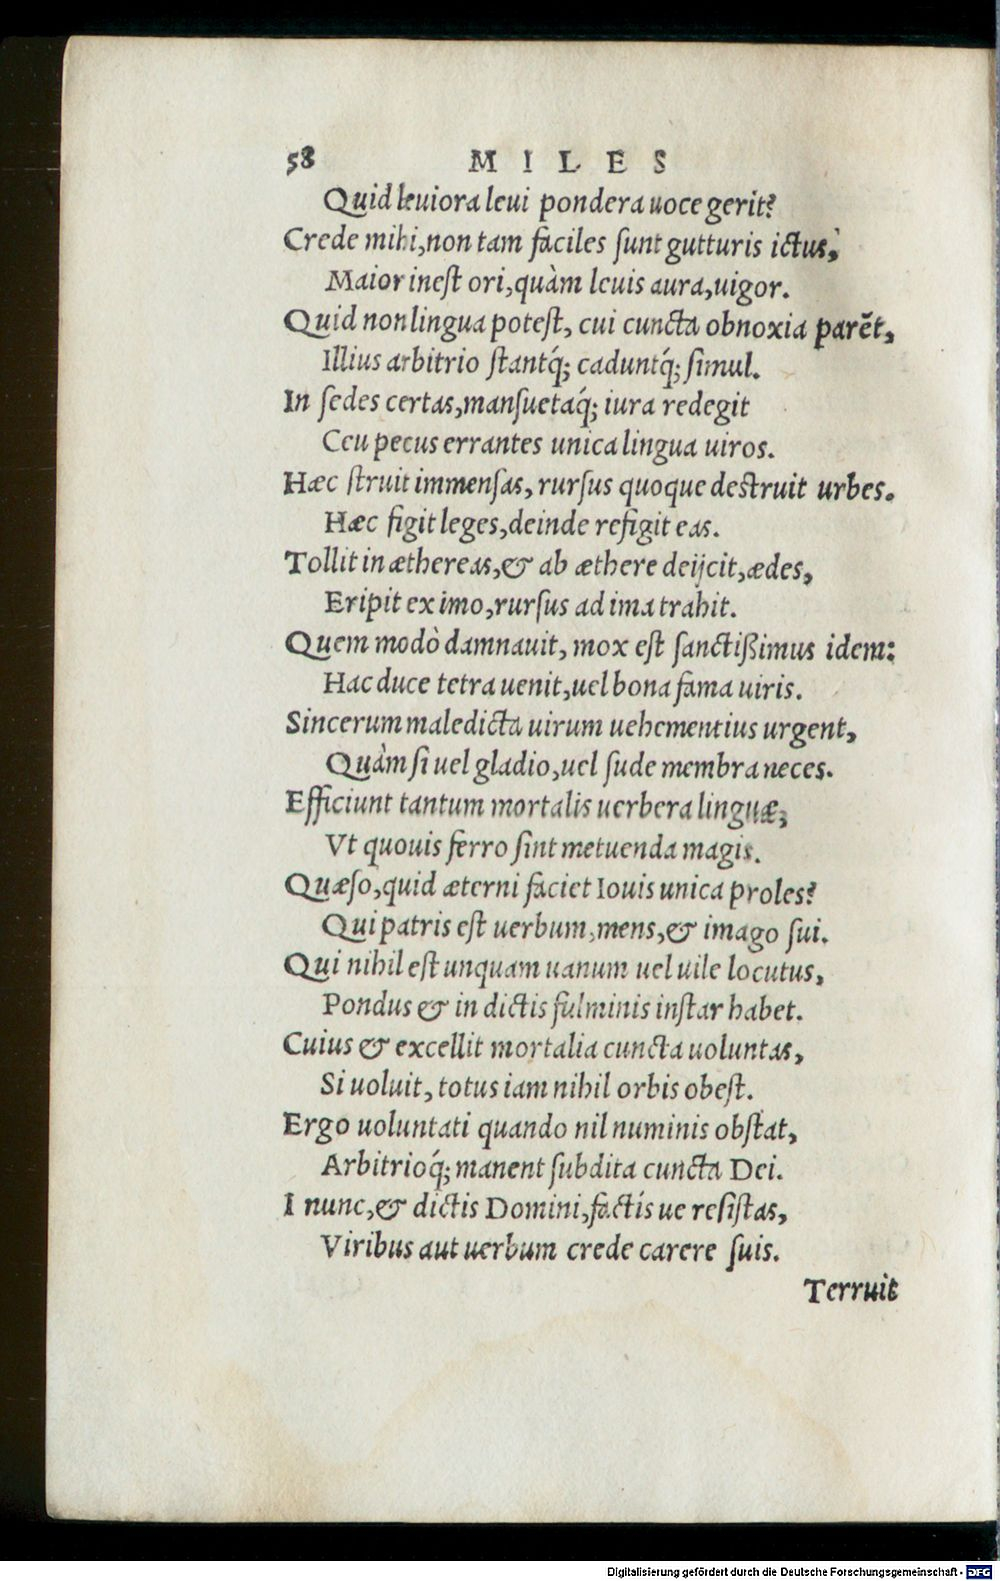 58 MILES
Quid leuiora leui pondera uoce gerit?
Crede mihi, non tam faciles sunt gutturis ictus,
Maior inest ori, quàm leuis aura, uigor.
Quid non lingua potest, cui cuncta obnoxia parẽt,
Illius arbitrio stantq́; caduntq́; simul.
In sedes certas, mansuetaq́; iura redegit
Ceu pecus errantes unica lingua uiros.
Hæc struit immensas, rursus quoque destruit urbes.
Hæc figit leges, deinde refigit eas.
Tollit in æthereas, & ab æthere deijcit, ædes,
Eripit ex imo, rursus ad ima trahit.
Quem modò damnauit, mox est sanctißimus idem:
Hac duce tetra uenit, uel bona fama uiris.
Sincerum maledicta uirum uehementius urgent,
Quàm si uel gladio, uel sude membra neces.
Efficiunt tantum mortalis uerbera linguæ,
Vt quouis ferro sint metuenda magis.
Quæso, quid æterni faciet Iouis unica proles?
Qui patris est uerbum, mens, & imago sui.
Qui nihil est unquam uanum uel uile locutus,
Pondus & in dictis fulminis instar habet.
Cuius & excellit mortalia cuncta uoluntas,
Si uoluit, totus iam nihil orbis obest.
Ergo uoluntati quando nil numinis obstat,
Arbitrioq́; manent subdita cuncta Dei.
I nunc, & dictis Domini, factís ue resistas,
Viribus aut uerbum crede carere suis.
Terruit
Digitalisierung gefördert durch die Deutsche Forschungsgemeinschaft - DFG